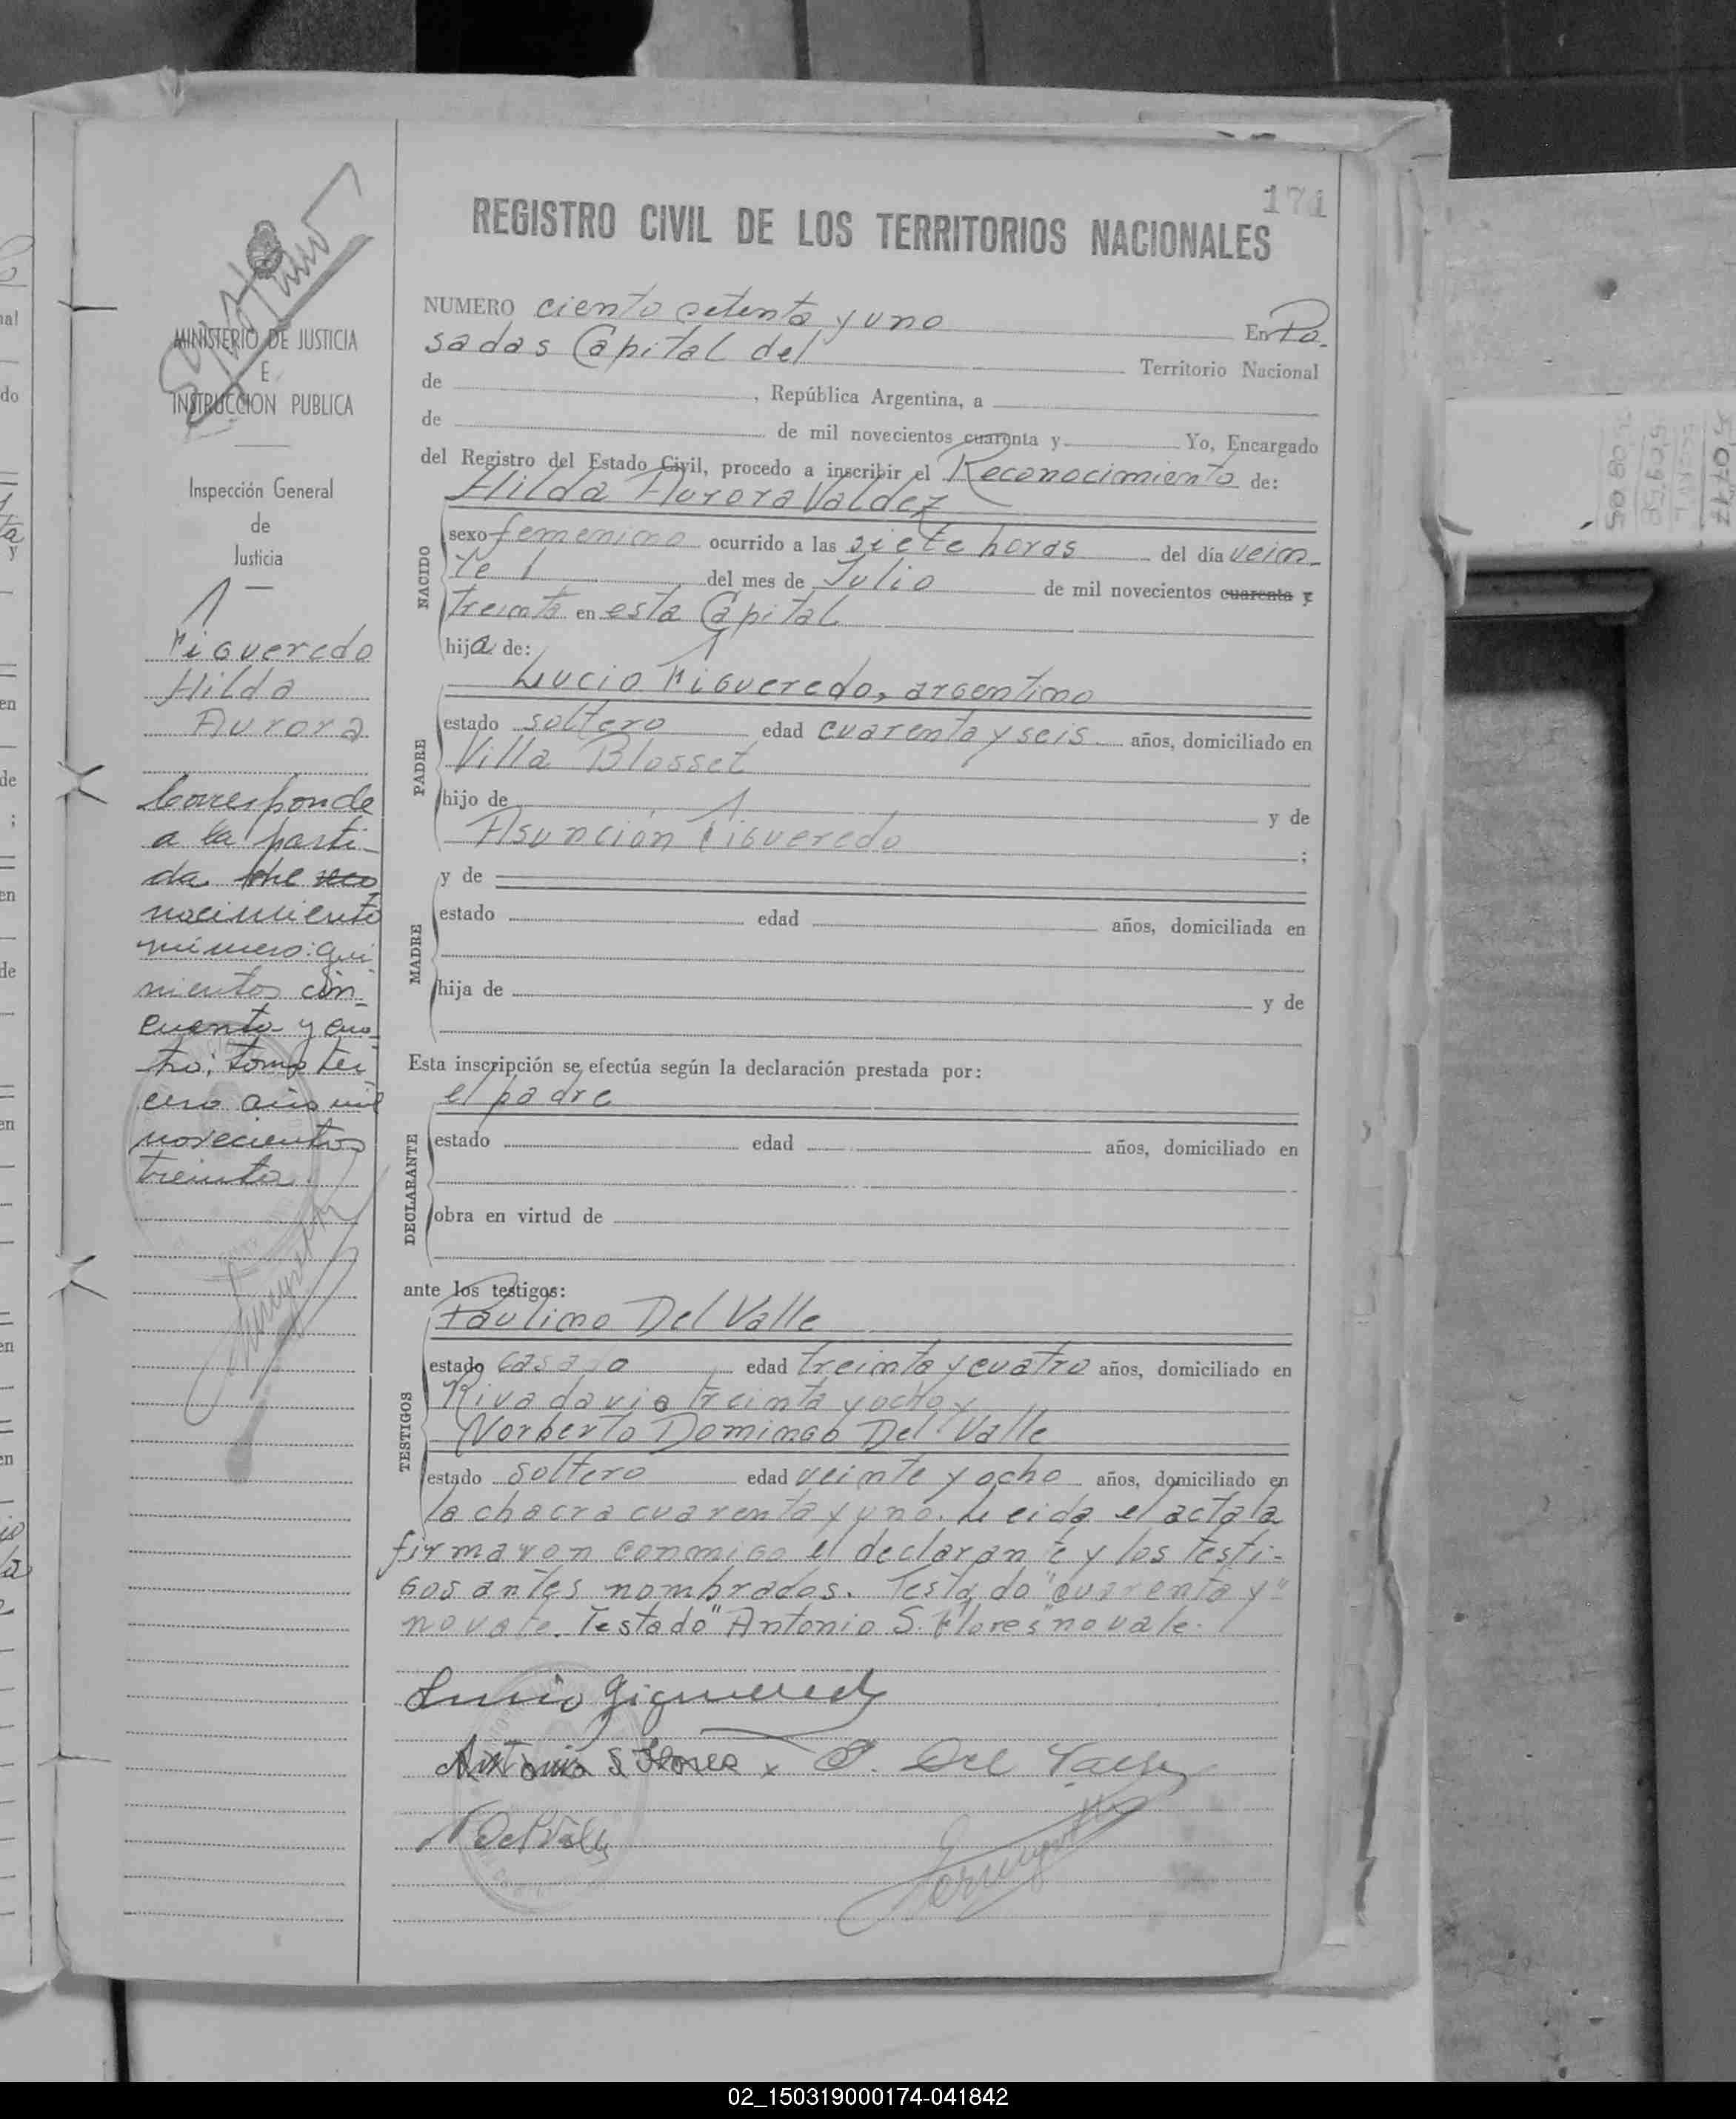 171
REGISTRO CIVIL DE LOS TERRITORIOS NACIONALES
MINISTERIO DE JUSTICIA
E
INSTRUCCION PUBLICA
Inspección General
de
Justicia
Figueredo
Hilda
Aurora
Corresponde
a la parti-
da
nacimiento
número: qui
nientos cin-
cuenta y cua
tro; tomo ter
cero año mil
novecientos
treinta.
NUMERO ciento setenta y uno En Po.
sadas Capital del Territorio Nacional
de , República Argentina, a
de de mil novecientos cuarenta y Yo, Encargado
del Registro del Estado Civil, procedo a inscribir el Reconocimiento de:
Hilda Aurora Valdez
NACIDO
sexo femenino ocurrido a las siete horas del día vein-
te del mes de Julio de mil novecientos cuarenta y
treinta en esta Capital
hija de:
PADRE
Lucio Figueredo, argentino
estado soltero edad cuarenta y seis años, domiciliado en
Villa Blosset
hijo de y de
Asunción Figueredo ;
MADRE
y de
estado edad años, domiciliada en
hija de y de
Esta inscripción se efectúa según la declaración prestada por:
el padre
DECLARANTE
estado edad años, domiciliado en
obra en virtud de
ante los testigos:
TESTIGOS
Paulino Del Valle
estado casado edad treinta y cuatro años, domiciliado en
Rivadavia treinta y ocho y
Norberto Domingo Del Valle
estado soltero edad veinte y ocho años, domiciliado en
la chacra cuarenta y uno. Leida el acta la
firmaron conmigo el declarante y los testi-
gos antes nombrados. Testado "cuarenta y"
no vale. Testado "Antonio S. Flores" no vale.
Lucio Figueredo
Antonio S Flores x P. Del Valle
N Del Valle
02_150319000174-041842